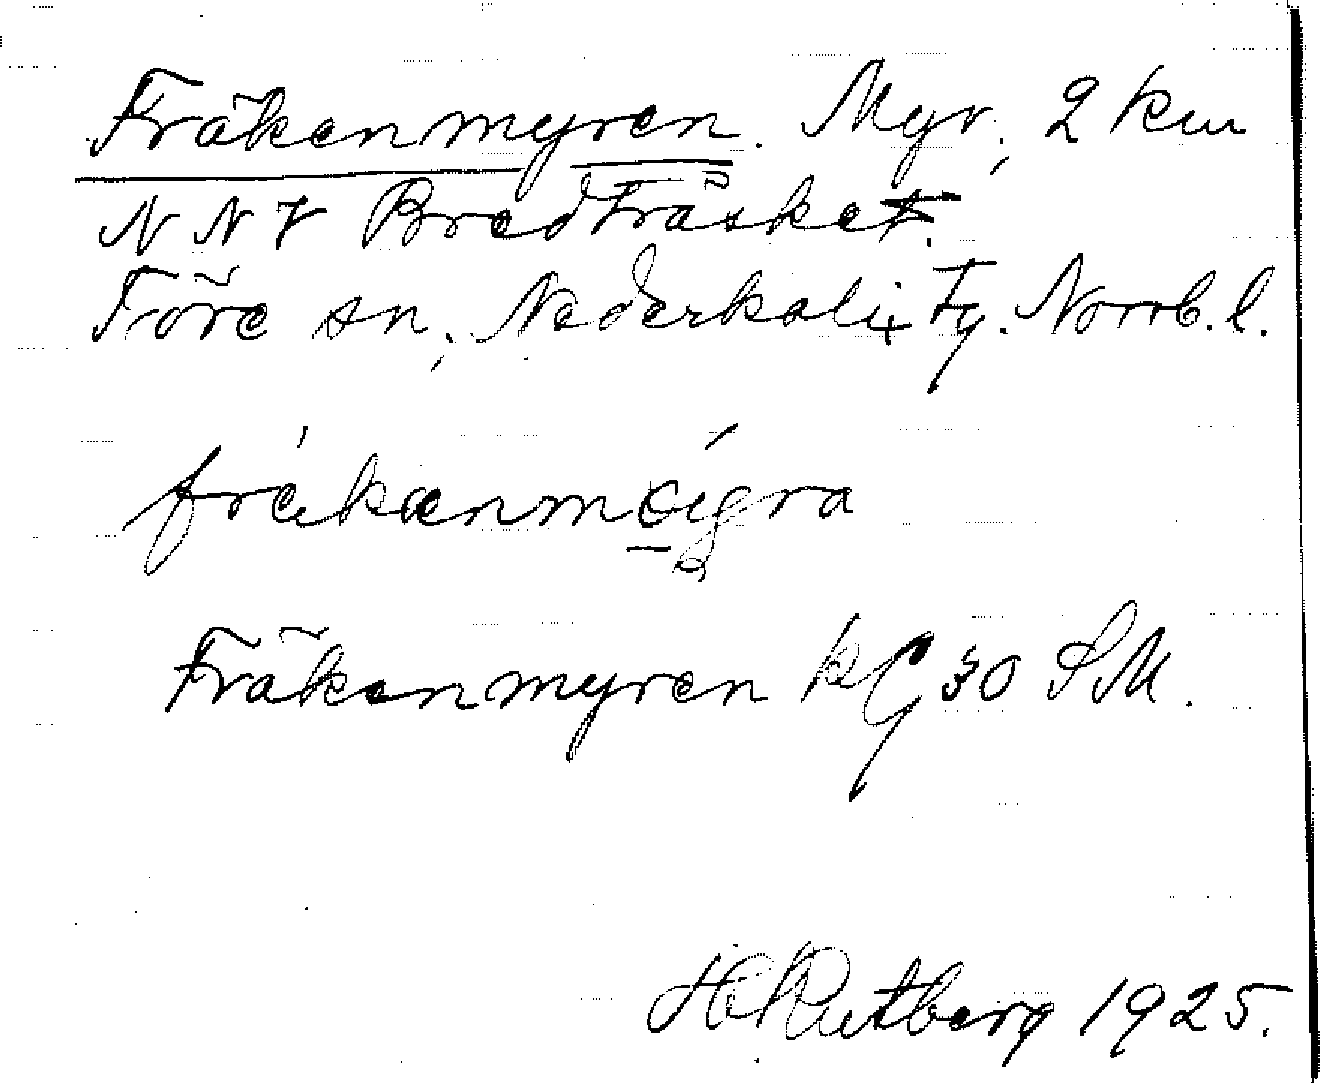 Fräkenmyren. Myr, 2 km
NNV Bredträsket.
Töre sn, Nederkalix Tg. Norrb. l.
Fräkenmyren kG 30 SM.
H Rutberg 1925.